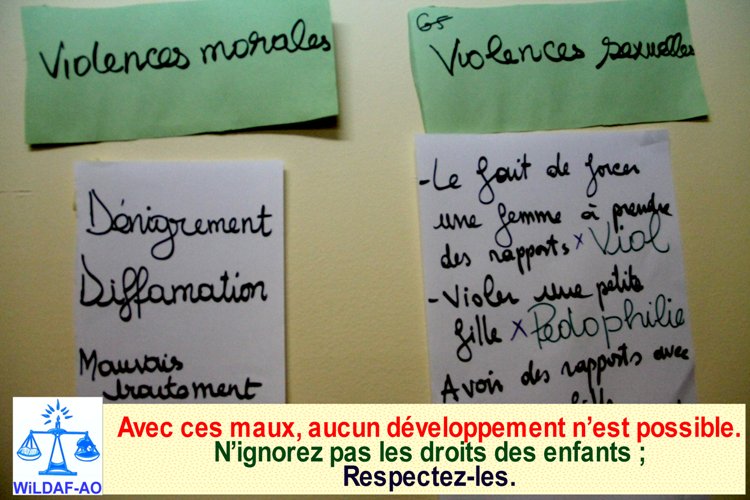 Violences morales
G5
Violences sexuelles
Dénigrement
Diffamation
Mauvais
traitement
-Le fait de forcer
une femme à prendre
des rapports x Viol
-Violer une petite
fille x Pédophilie
Avoir des rapports avec
WiLDAF-AO
Avec ces maux, aucun développement n'est possible.
N'ignorez pas les droits des enfants ;
Respectez-les.